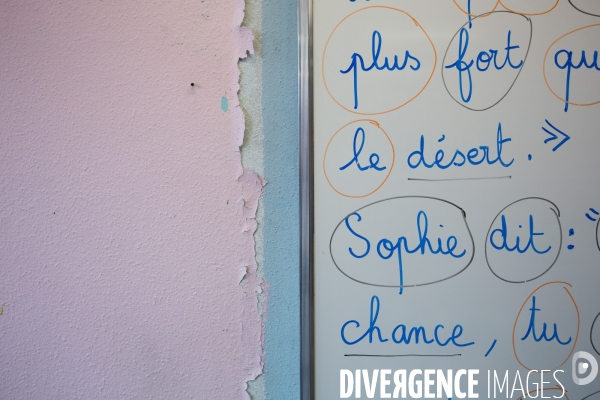 plus fort qu
le désert. »
Sophie dit : "
chance, tu
DIVERGENCE IMAGES